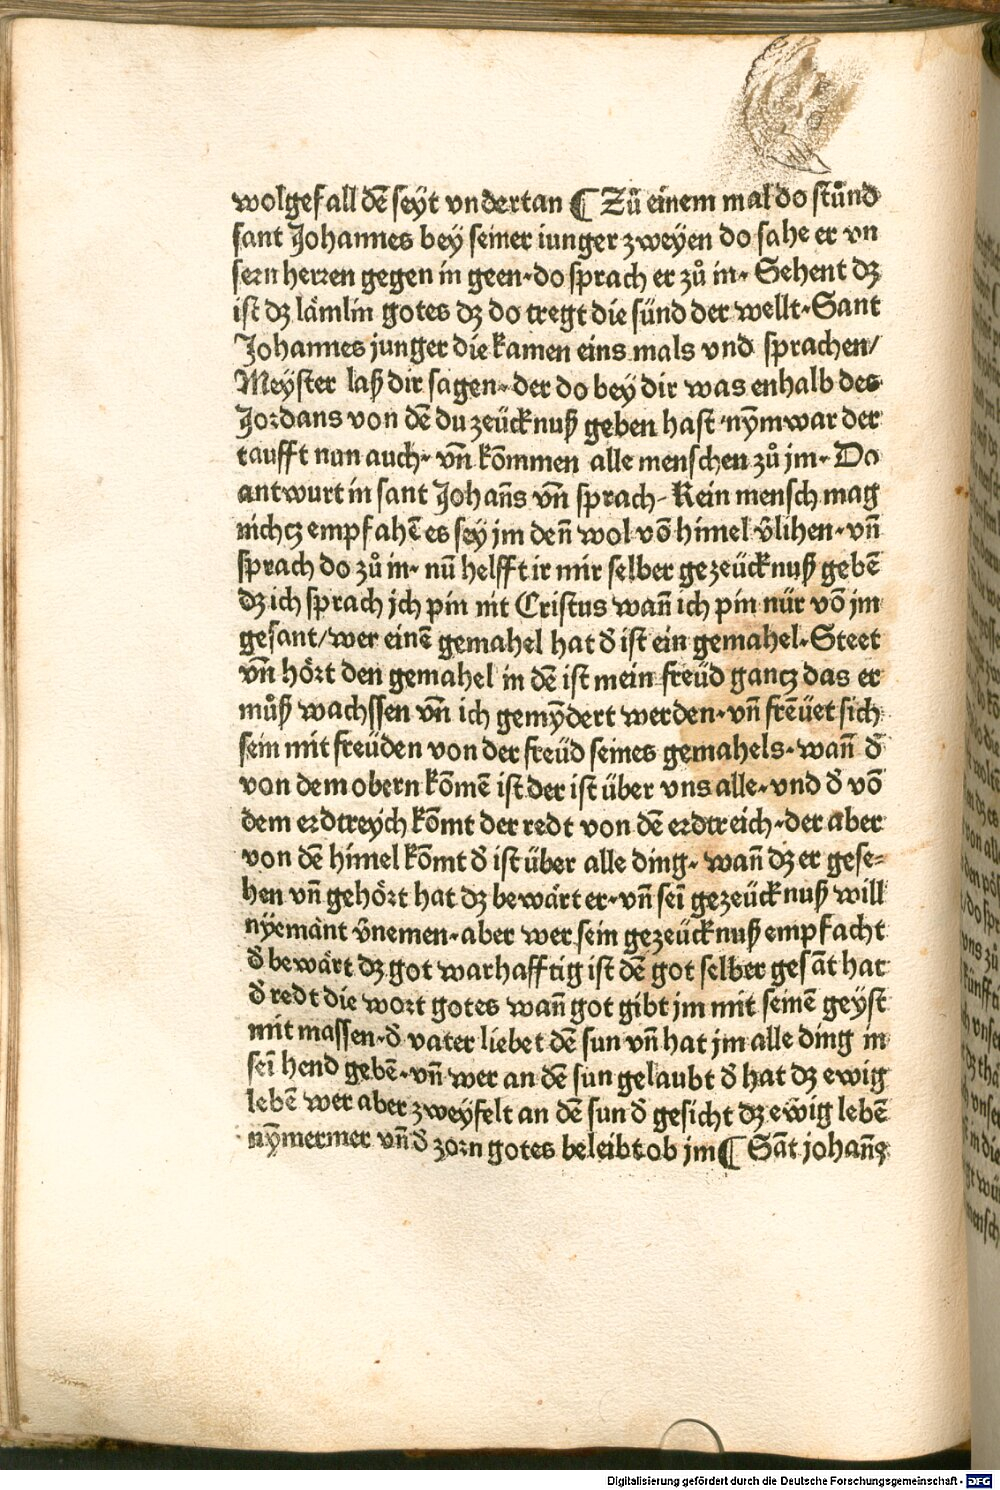 wolgefall dē seyt vndertan ¶ Zů einem mal do stůnd
sant Johannes bey seiner iunger zweyen do sahe er vn
sern herren gegen in geen. do sprach er zů in. Sehent dz
ist dz lämlin gotes dz do tregt die sünd der wellt. Sant
Johannes junger die kamen eins mals vnd sprachen/
Meyster laß dir sagen. der do bey dir was enhalb des
Jordans von dē du zeücknuß geben hast nȳm war der
taufft nun auch. vn̄ kōmmen alle menschen zů jm. Do
antwurt in sant Johan̄s vn̄ sprach. Kein mensch mag
nichcz empfahē es sey jm den̄ wol vō himel v̄lihen. vn̄
sprach do zů in. nū helfft ir mir selber gezeücknuß gebē
dz ich sprach jch pin nit Cristus wan̄ ich pin nür vō jm
gesant/wer einē gemahel hat d̄ ist ein gemahel. Steet
vn̄ hört den gemahel in dē ist mein freüd gancz das er
můß wachssen vn̄ ich gemȳdert werden. vn̄ frēuet sich
sein mit freüden von der freüd seines gemahels. wan̄ d̄
von dem obern kōmē ist der ist über vns alle. vnd d̄ vō
dem erdtreych kōmt der redt von dē erdtreich. der aber
von dē himel kōmt d̄ ist über alle ding. wan̄ dz er gese=
hen vn̄ gehört hat dz bewärt er. vn̄ seī gezeücknuß will
nyemant v̄nemen. aber wer sein gezeücknuß empfacht
d̄ bewärt dz got warhafftig ist dē got selber gesāt hat
d̄ redt die wort gotes wan̄ got gibt jm mit seinē geyst
mit massen. d̄ vater liebet dē sun vn̄ hat jm alle ding in
seī hend gebē. vn̄ wer an dē sun gelaubt d̄ hat dz ewig
lebē wer aber zweyfelt an dē sun d̄ gesicht dz ewig lebē
nȳmermer vn̄ d̄ zorn gotes beleibt ob jm ¶ Sāt johan̄s
Digitalisierung gefördert durch die Deutsche Forschungsgemeinschaft - DFG